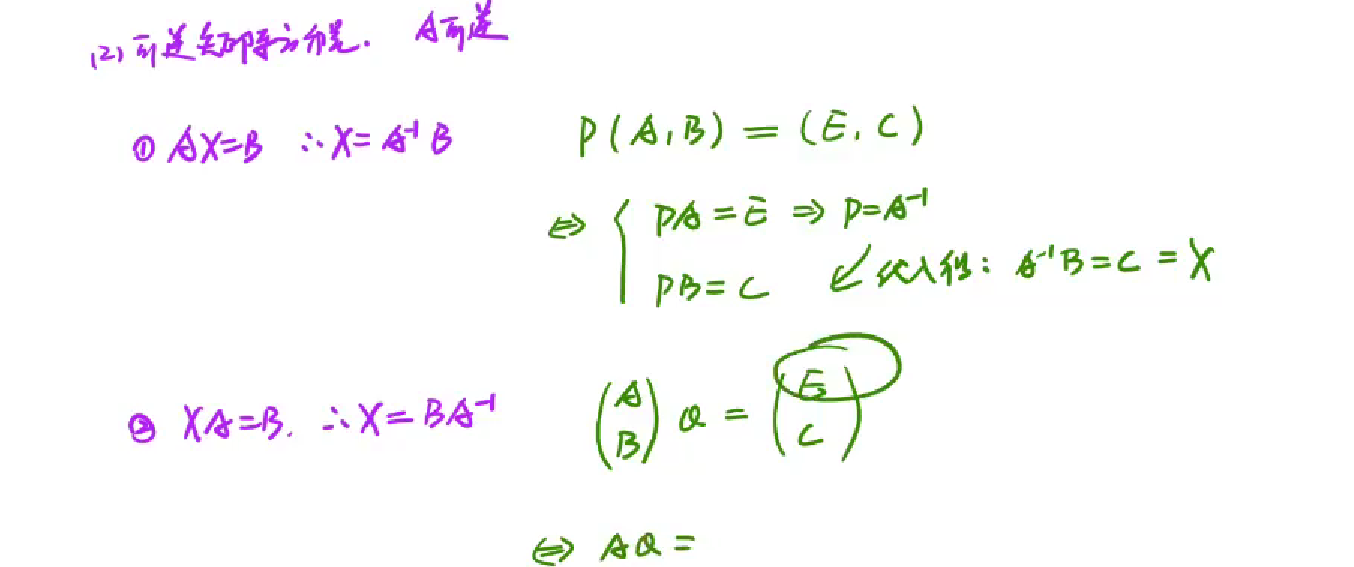 (2) 可逆矩阵方程. A可逆
① AX=B ∴X=A⁻¹B P(A,B)=(E,C)
⇔ { PA=E ⇒ P=A⁻¹
PB=C ↙代入得: A⁻¹B=C=X
② XA=B. ∴X=BA⁻¹ (A B)Q=(E C)
⇔ AQ=